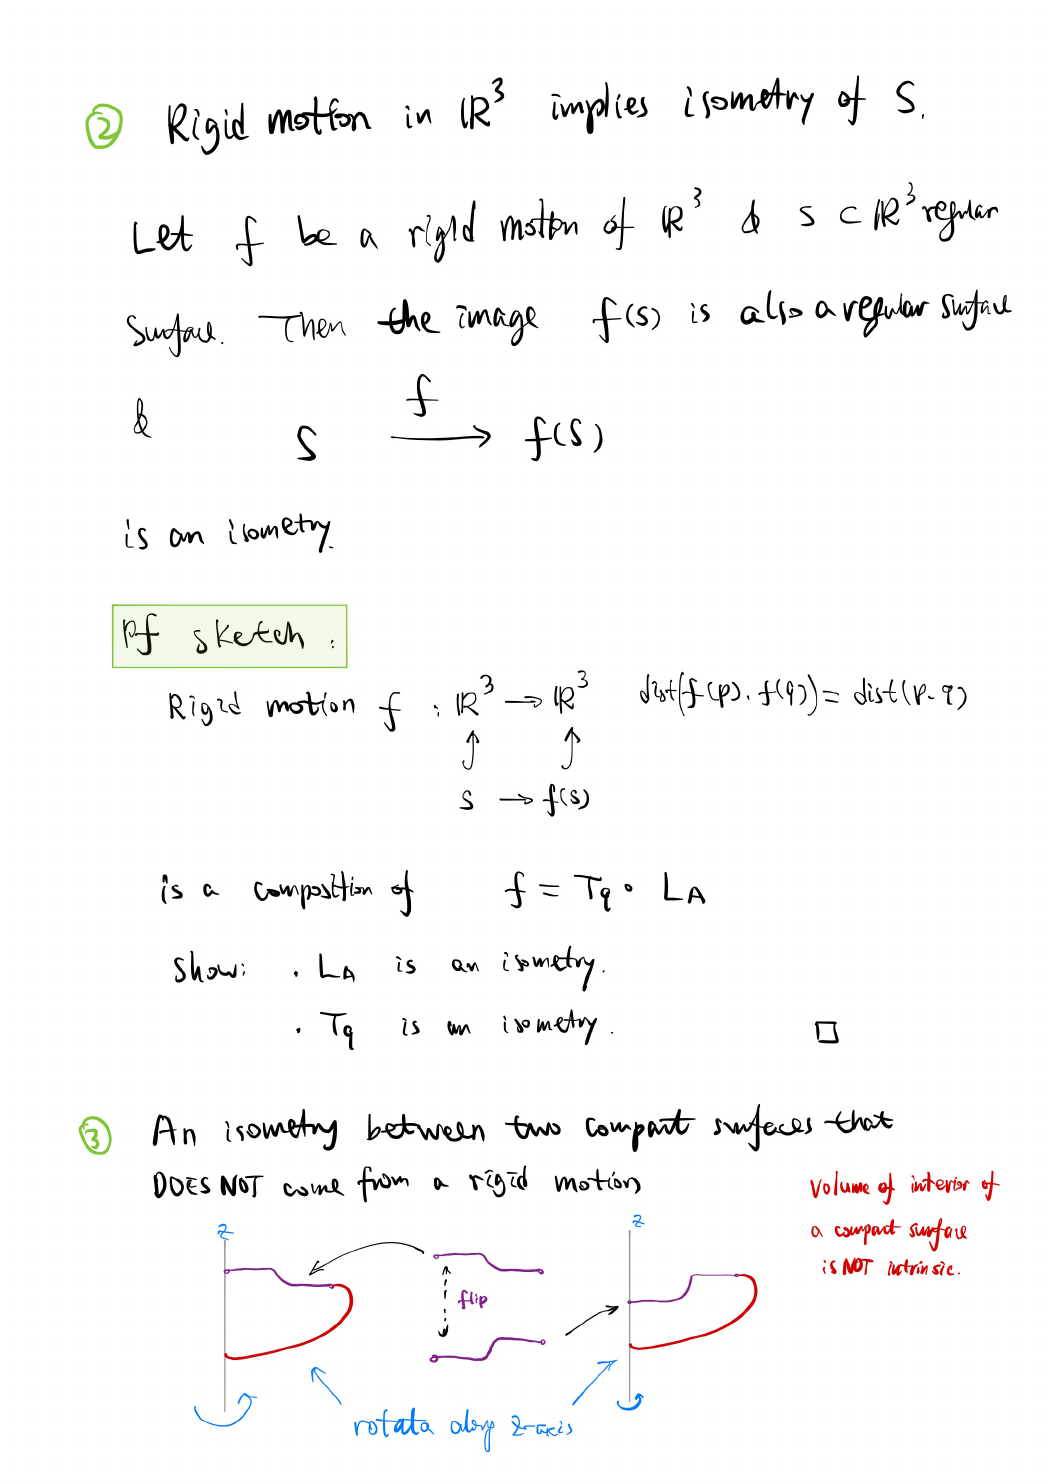 ② Rigid motion in ℝ³ implies isometry of S.
Let f be a rigid motion of ℝ³ & S ⊂ ℝ³ regular
surface. Then the image f(S) is also a regular surface
&
S →f f(S)
is an isometry.
Pf sketch :
Rigid motion f : ℝ³ → ℝ³ dist(f(p), f(q)) = dist(p, q)
↑ ↑
S → f(S)
is a composition of f = Tq ∘ LA
Show: · LA is an isometry.
· Tq is an isometry. □
③ An isometry between two compact surfaces that
DOES NOT come from a rigid motion
Volume of interior of
a compact surface
is NOT intrinsic.
z
z
flip
rotata along z-axis